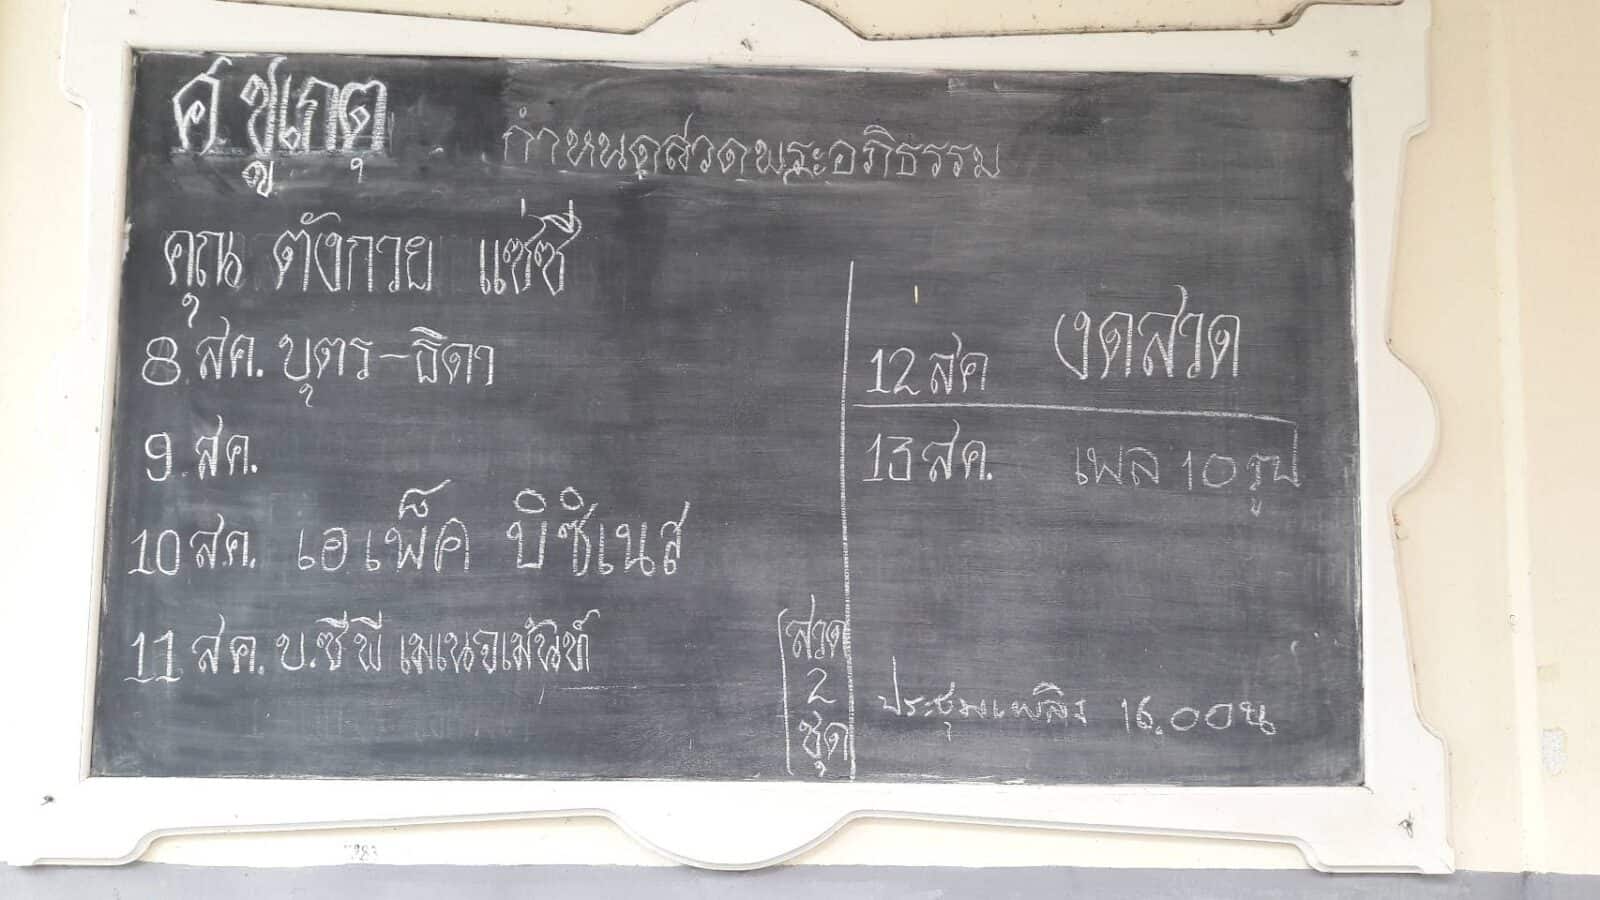 ศ.ชูเกตุ
กำหนดสวดพระอภิธรรม
คุณ ตังกวย แซ่ซี
8 สค. บุตร-ธิดา
9 สค.
10 สค. เอเพ็ค บิซิเนส
11 สค. บ.ซีพี เมเนจเม้นท์
สวด
2
ชุด
12 สค งดสวด
13 สค. เพล 10 รูป
ประชุมเพลิง 16.00น